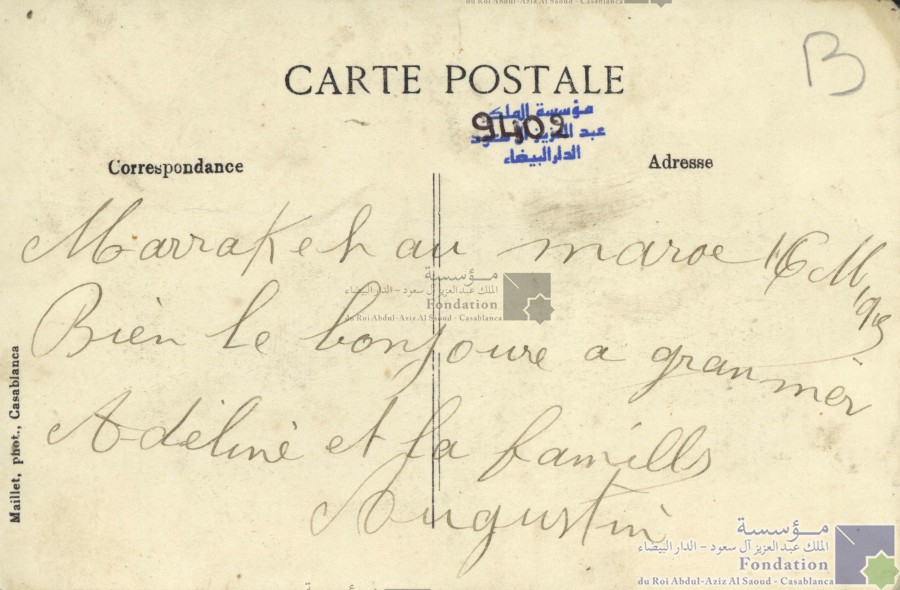 du Roi Abdul-Aziz Al Saoud - Casablanca
B
CARTE POSTALE
مؤسسة الملك
عبد العزيز آل سعود
الدار البيضاء
9402
Correspondance
Adresse
Marrakeh au maroc 16 M
Bien le bonjoure a granmèr
Adéline et la famille
Augustin
Maillet, phot., Casablanca
مؤسسة
الملك عبد العزيز آل سعود – الدار البيضاء
Fondation
du Roi Abdul-Aziz Al Saoud - Casablanca
مؤسسة
الملك عبد العزيز آل سعود – الدار البيضاء
Fondation
du Roi Abdul-Aziz Al Saoud - Casablanca
مؤسسة